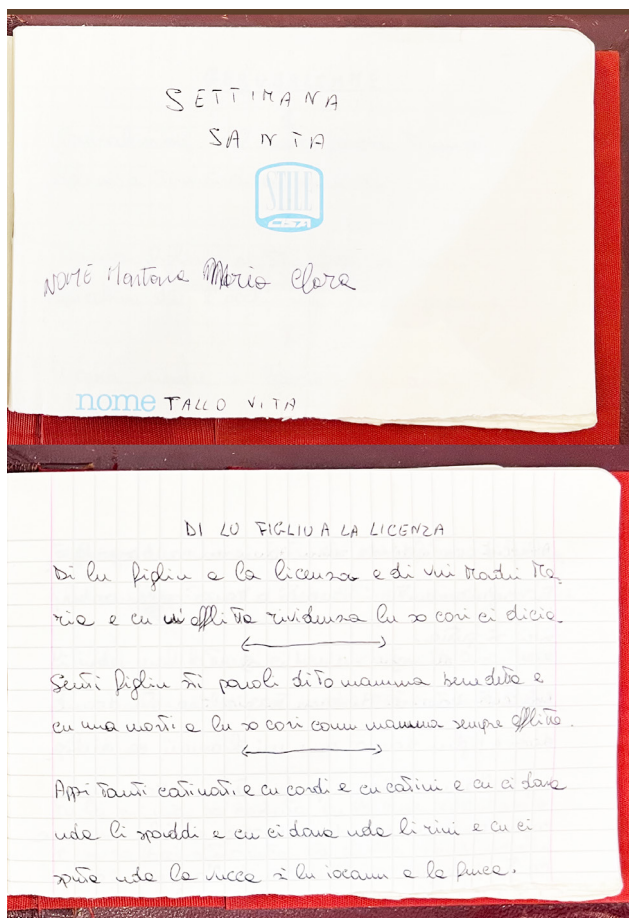 SETTIMANA
SANTA
STILE
NOME Mantona Maria Clara
nome TALLO VITA
DI LU FIGLIU A LA LICENZA
Di lu figliu a la licenza e di vui Madri Ma,
ria e cu un'afflitta rividenza lu so cori ci dicia.
Senti figliu sti paroli di to mamma beneditta e
cu una morti a lu so cori comu mamma sempre afflitta.
Appi tanti catinati e cu cordi e cu catini e cu ci dava
nda li spaddi e cu ci dava nda li rini e cu ci
sputa nda la vucca si lu iocanu a la fruca.